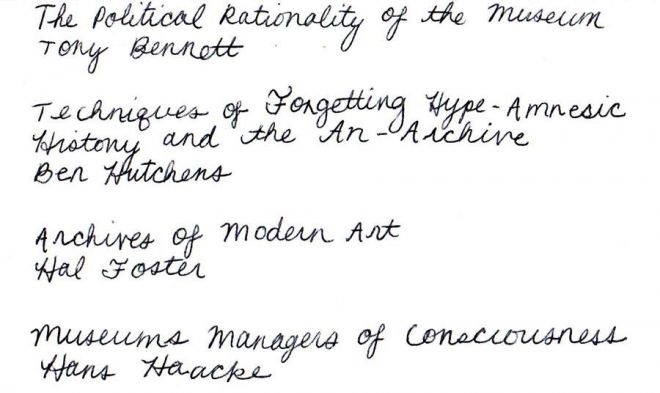 The Political Rationality of the Museum
Tony Bennett
Techniques of Forgetting Hype-Amnesic
History and the An-Archive
Ben Hutchens
Archives of Modern Art
Hal Foster
Museums Managers of Consciousness
Hans Haacke